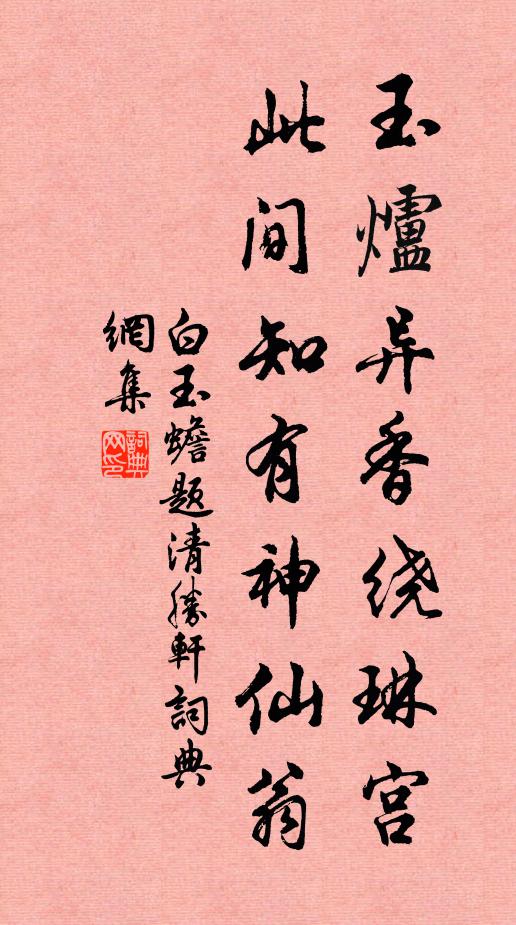 玉爐异香绕琳宫
此间知有神仙翁
白玉蟾题清勝軒詞典
網集
詞典
网印